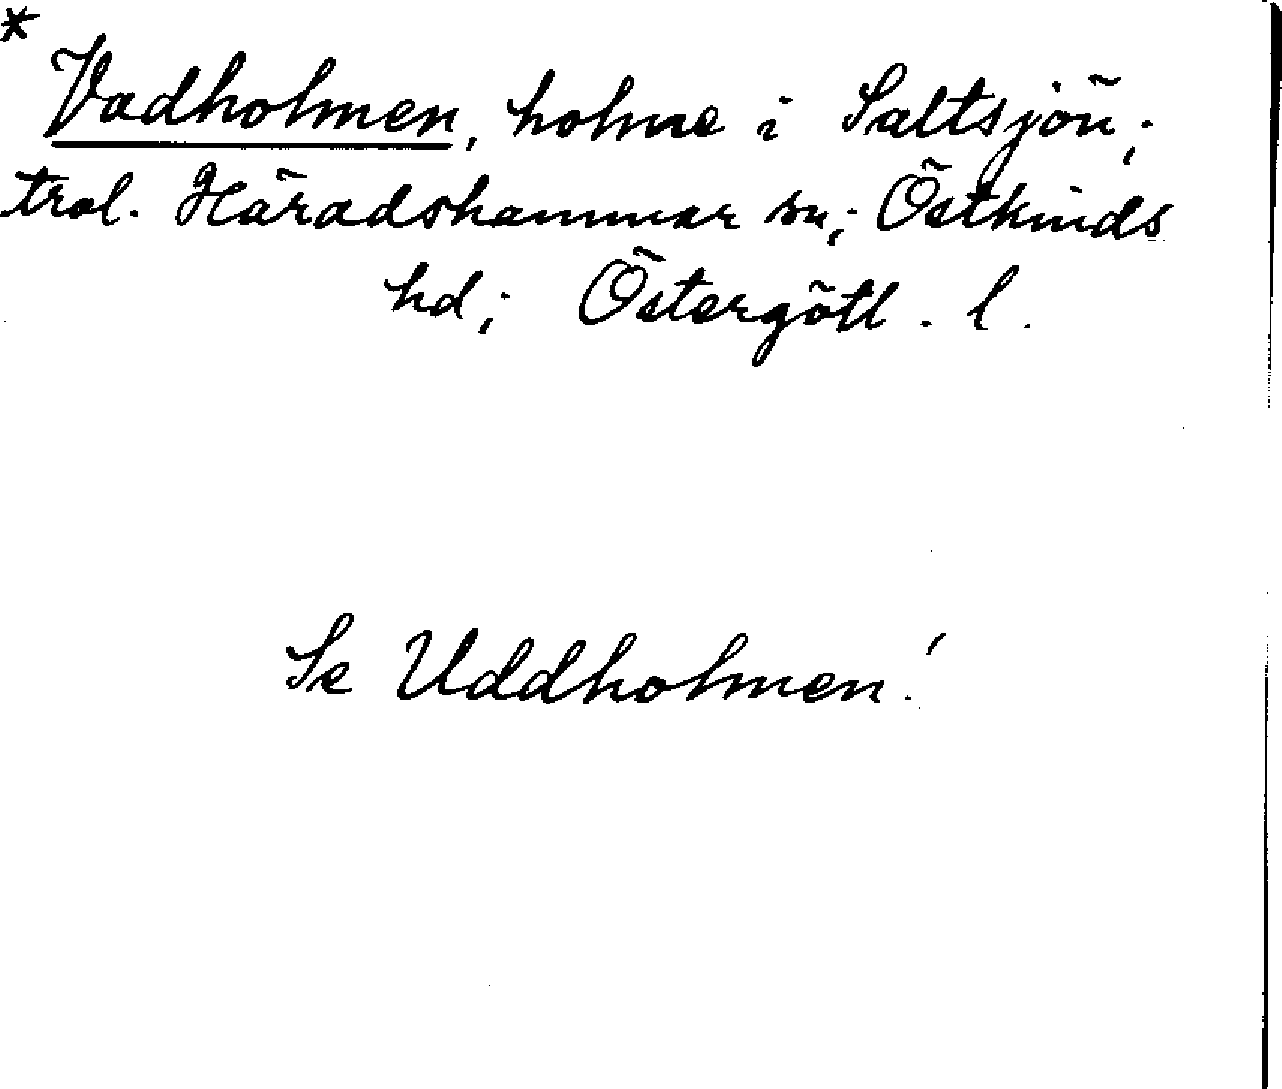 *
Vadholmen, holme i Saltsjön;
trol. Häradshammar sn; Östkinds
hd; Östergötl. l.
Se Uddholmen!